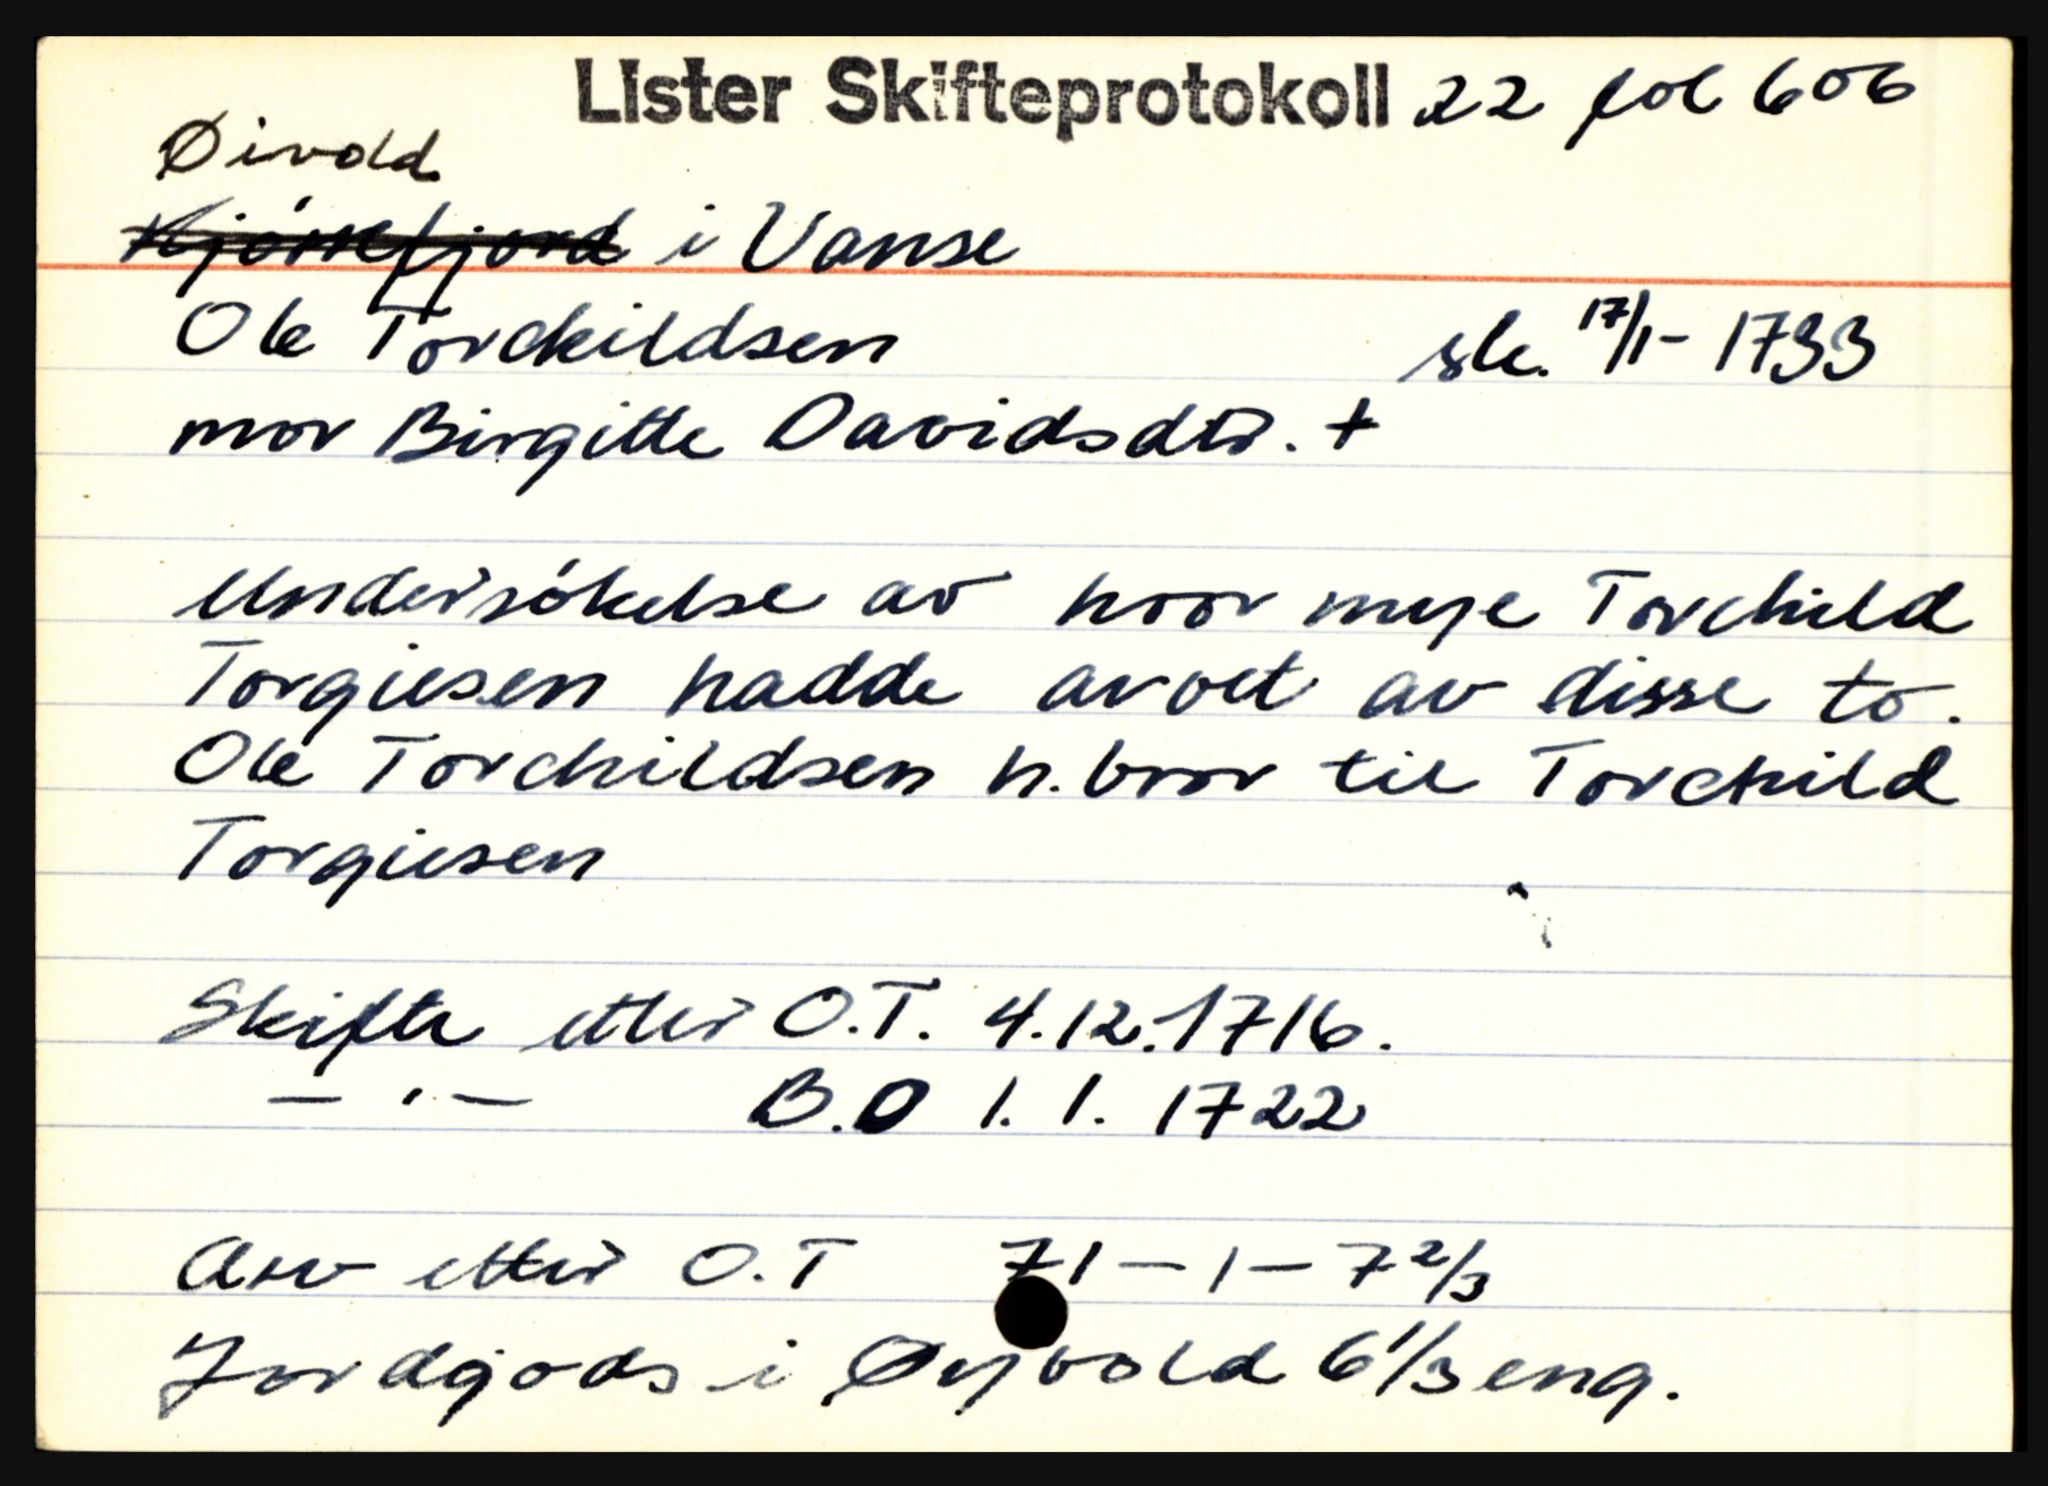 Lister Skifteprotokoll 22 fol 606
Øivold
Kjørrefjord i Vanse
Ole Torchildsen sk. 17/1- 1733
mor Birgitte Davidsdtr. +
Undersøkelse av hvor mye Torchild
Torgiesen hadde arvet av disse to.
Ole Torchildsen h. bror til Torchild
Torgiesen
Skifte etter O.T. 4.12.1716.
— " — B.D 1. 1. 1722
Arv etter O.T 71 — 1 — 7 2/3
Jordgods i Øyvold 6 1/3 eng.